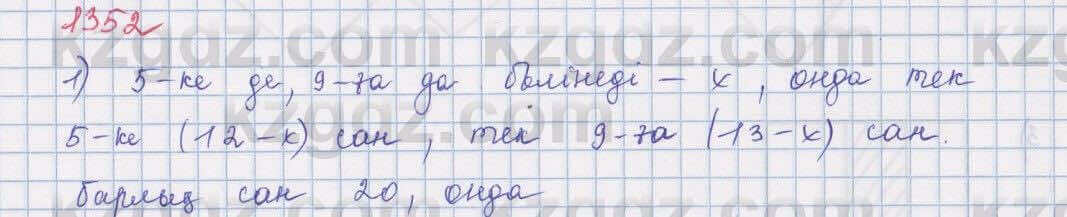 1352
1) 5-ке де, 9-ға да бөлінеді - х, онда тек
5-ке (12-х) сан, тек 9-ға (13-х) сан.
барлық сан 20, онда
kzgdz.com